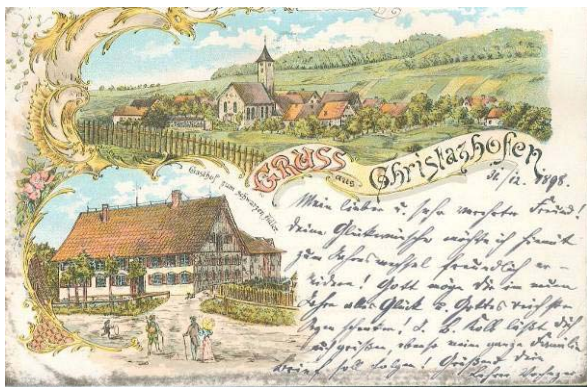 GRUSS
aus Christazhofen
Gasthof zum schwarzen Adler.
31/12. 1898.
Mein lieber u. sehr verehrter Freund!
deine Glückwünsche möchte ich hiemit
zum Jahreswechsel freundlich er-
widern! Gott möge dir im neuen
Jahre alles Glück u. Gottes reichsten
Segen schenken! läßt dich
grüßen, ebenso meine ganze Familie
soll folgen! Grüßend dein
Lehrer